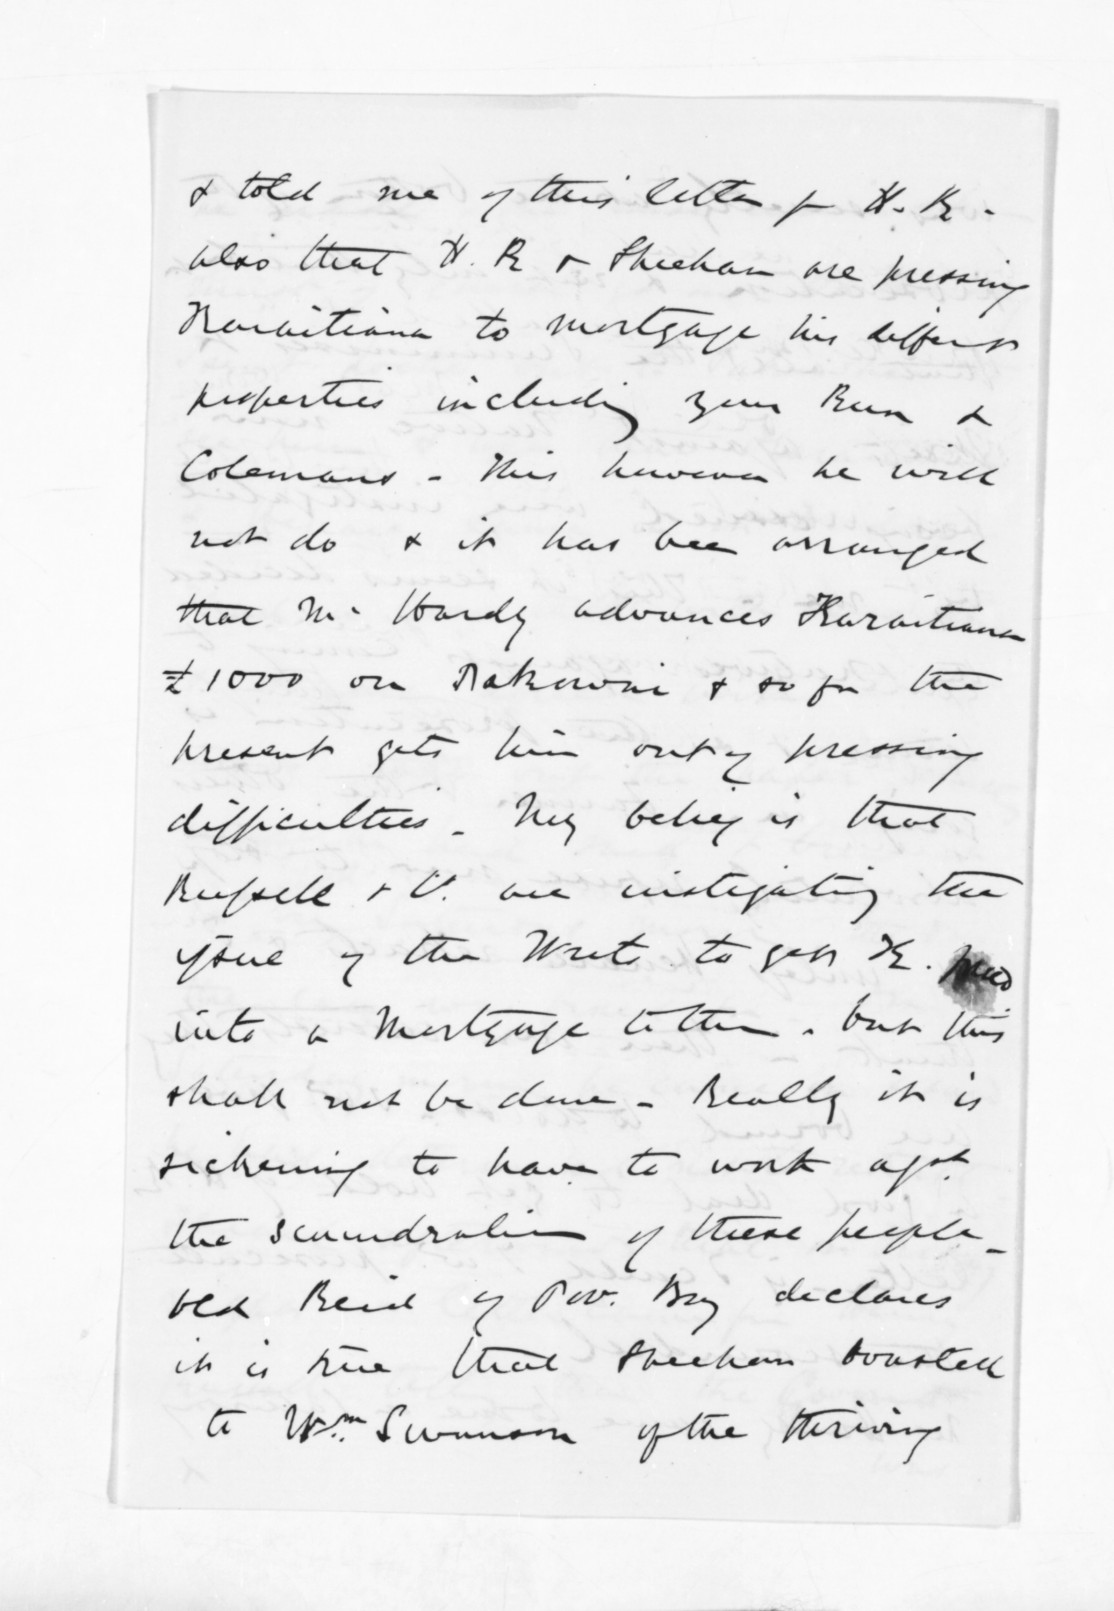 & told me of this letter fr H. R.
also that H. R & Sheehan are pressing
Karaitiana to mortgage his different
properties including your Run &
Colemans - This however he will
not do & it has been arranged
that Mr Hardy advances Karaitiana
£1000 on & so for the
present gets him out of pressing
difficulties - My belief is that
Russell & C. are instigating the
issue of the Writs to get K.
into a Mortgage to them - but this
shall not be done - Really it is
sickening to have to work agst
the scoundralism of these people -
old Reid of Pov. Bay declares
it is true that Sheehan boasted
to Wm Swanson of the thriving